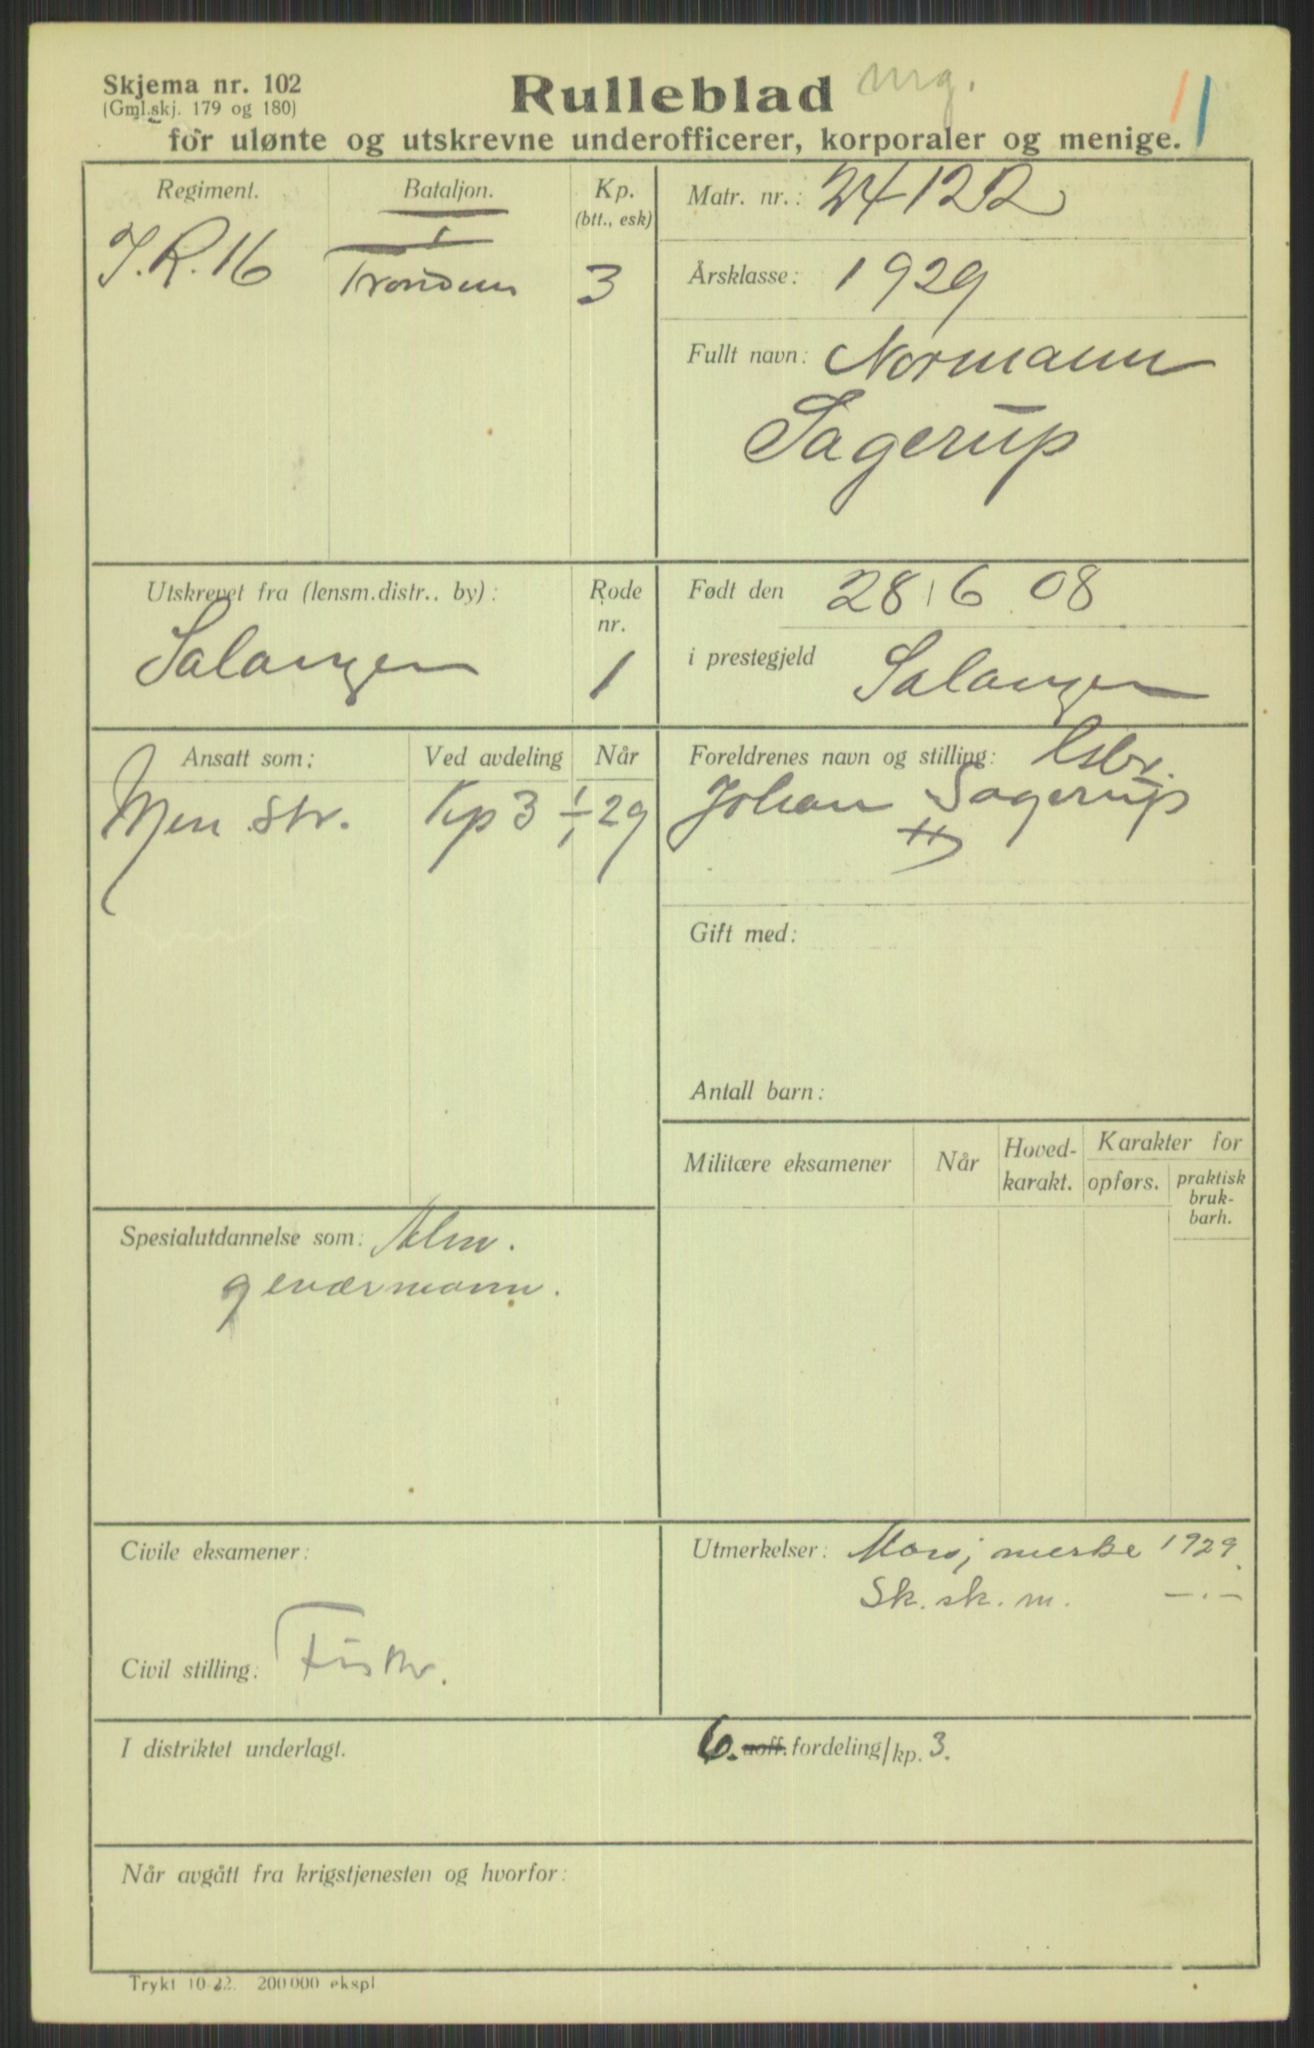 Skjema nr. 102
(Gml.skj. 179 og 180)
Rulleblad mg.
for ulønte og utskrevne underofficerer, korporaler og menige.
Regiment. Bataljon. Kp. (btt., esk)
I.R. 16 I Trondenes 3
Matr. nr.: 24122
Årsklasse: 1929
Fullt navn: Normann
Sagerup
Utskrevet fra (lensm.distr.. by): Rode nr.
Salangen 1
Født den 28/6 08
i prestegjeld Salangen
Ansatt som: Ved avdeling Når
Men. str. Kp 3 1/1 29
Foreldrenes navn og stilling:
Johan Sagerup
Gift med:
Antall barn:
Militære eksamener Når Hoved-karakt. Karakter for
opførs. praktisk bruk-barh.
Spesialutdannelse som: Alm.
geværmann.
Civile eksamener:
Civil stilling: Fisker.
Utmerkelser: Marsjmerke 1929.
Sk. sk. m. —.—
I distriktet underlagt. 6. uoff. fordeling/kp. 3.
Når avgått fra krigstjenesten og hvorfor:
Trykt 10-22. 200000 ekspl